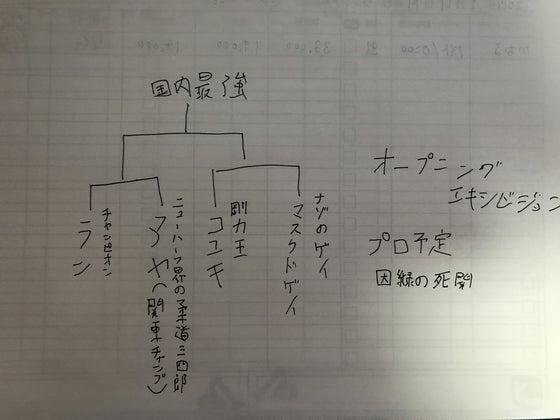 国内最強
チャンピオン
ラン
ニューハーフ界の柔道三四郎
アヤ(関東チャンプ)
剛力王
コユキ
ナゾのゲイ
マスクドゲイ
オープニング
エキシビジョン
プロ予定
因縁の死闘
33,000